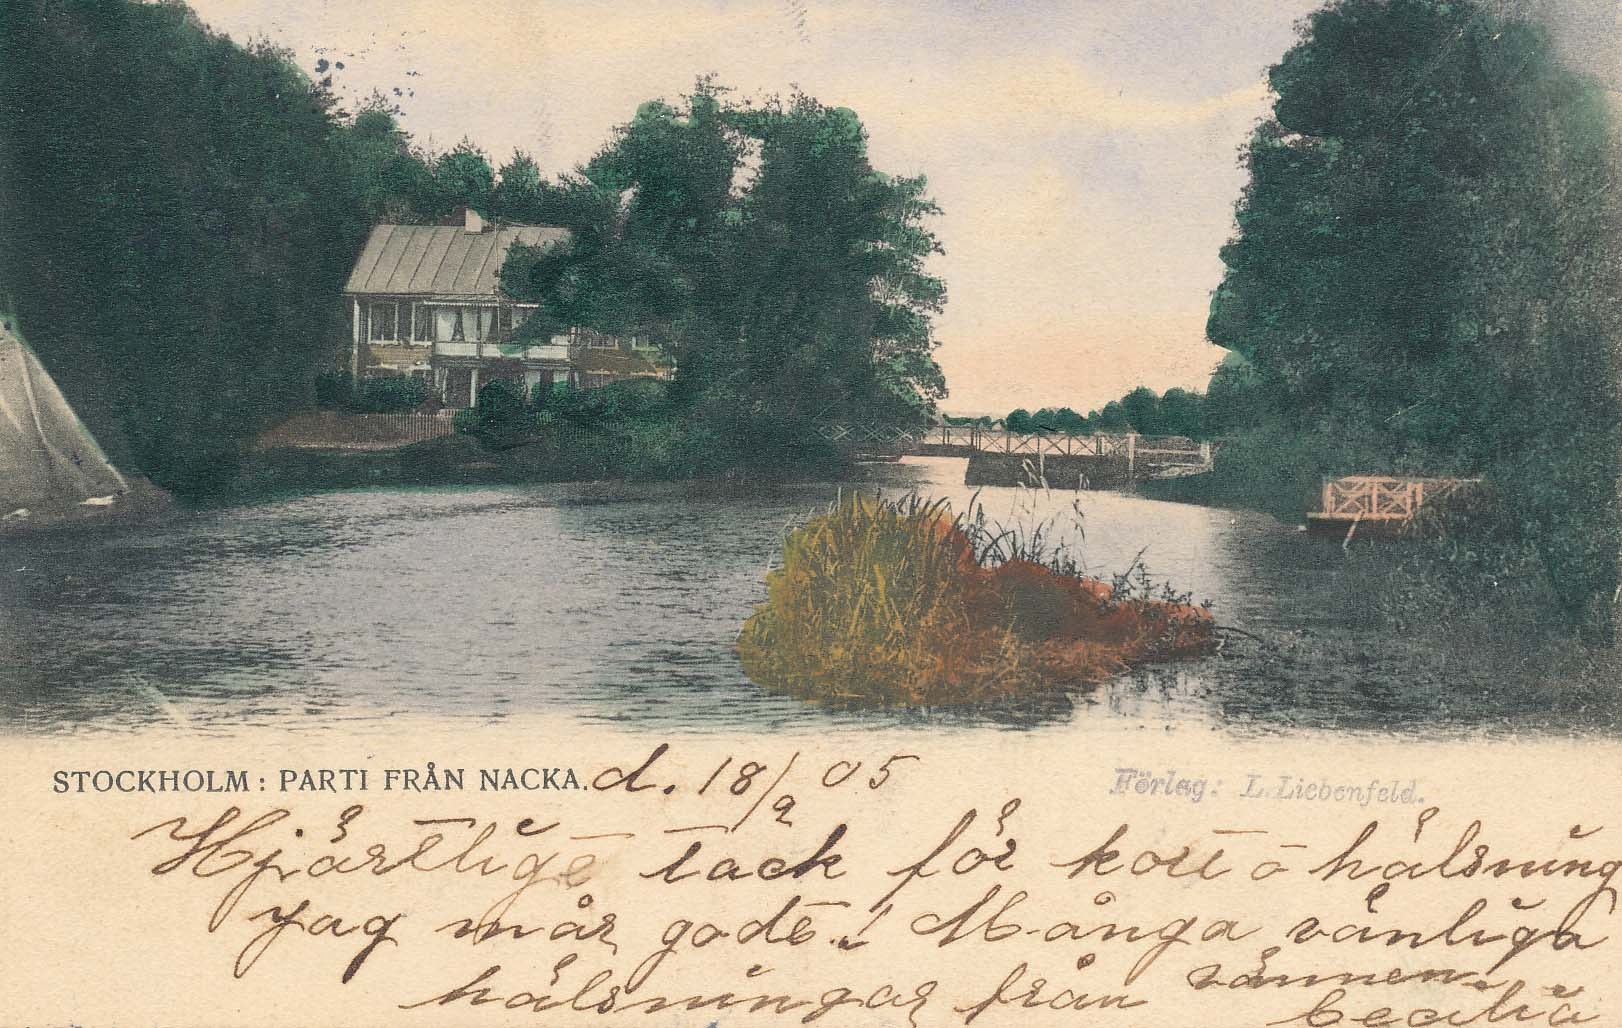 STOCKHOLM: PARTI FRÅN NACKA. d. 18/9 05
Förlag: L. Liebenfeld.
Hjärtligt tack för kort o hälsning
Jag mår godt! Många vänliga
hälsningar från vännen
Cecilia